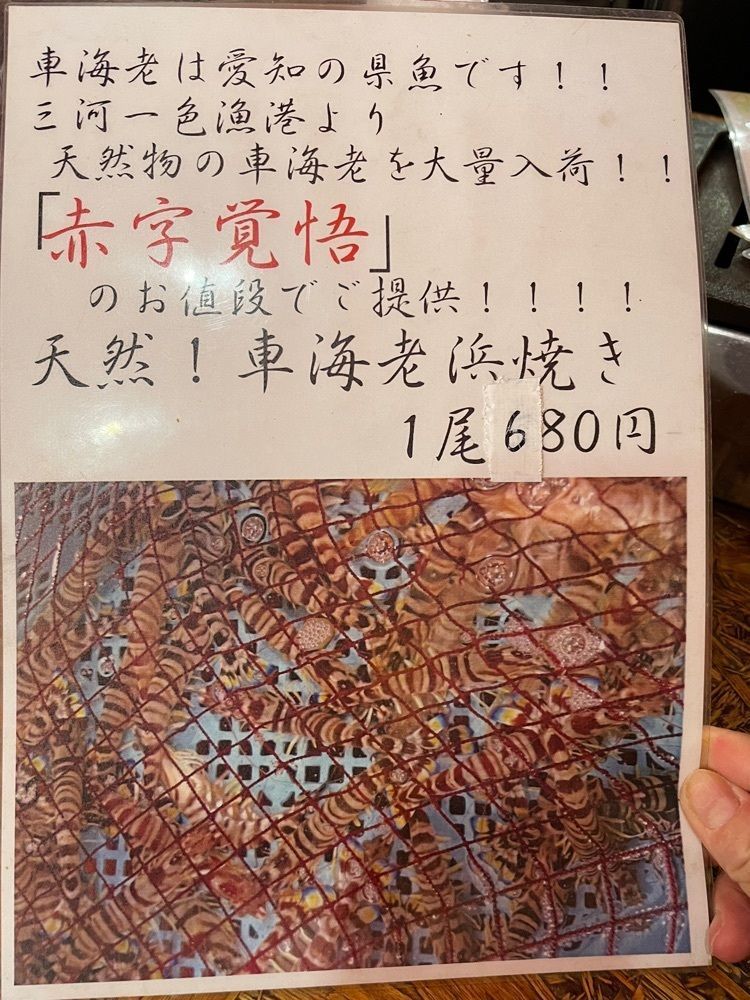 車海老は愛知の県魚です！！
三河一色漁港より
天然物の車海老を大量入荷！！
「赤字覚悟」
のお値段でご提供！！！！
天然！車海老浜焼き
1尾680円